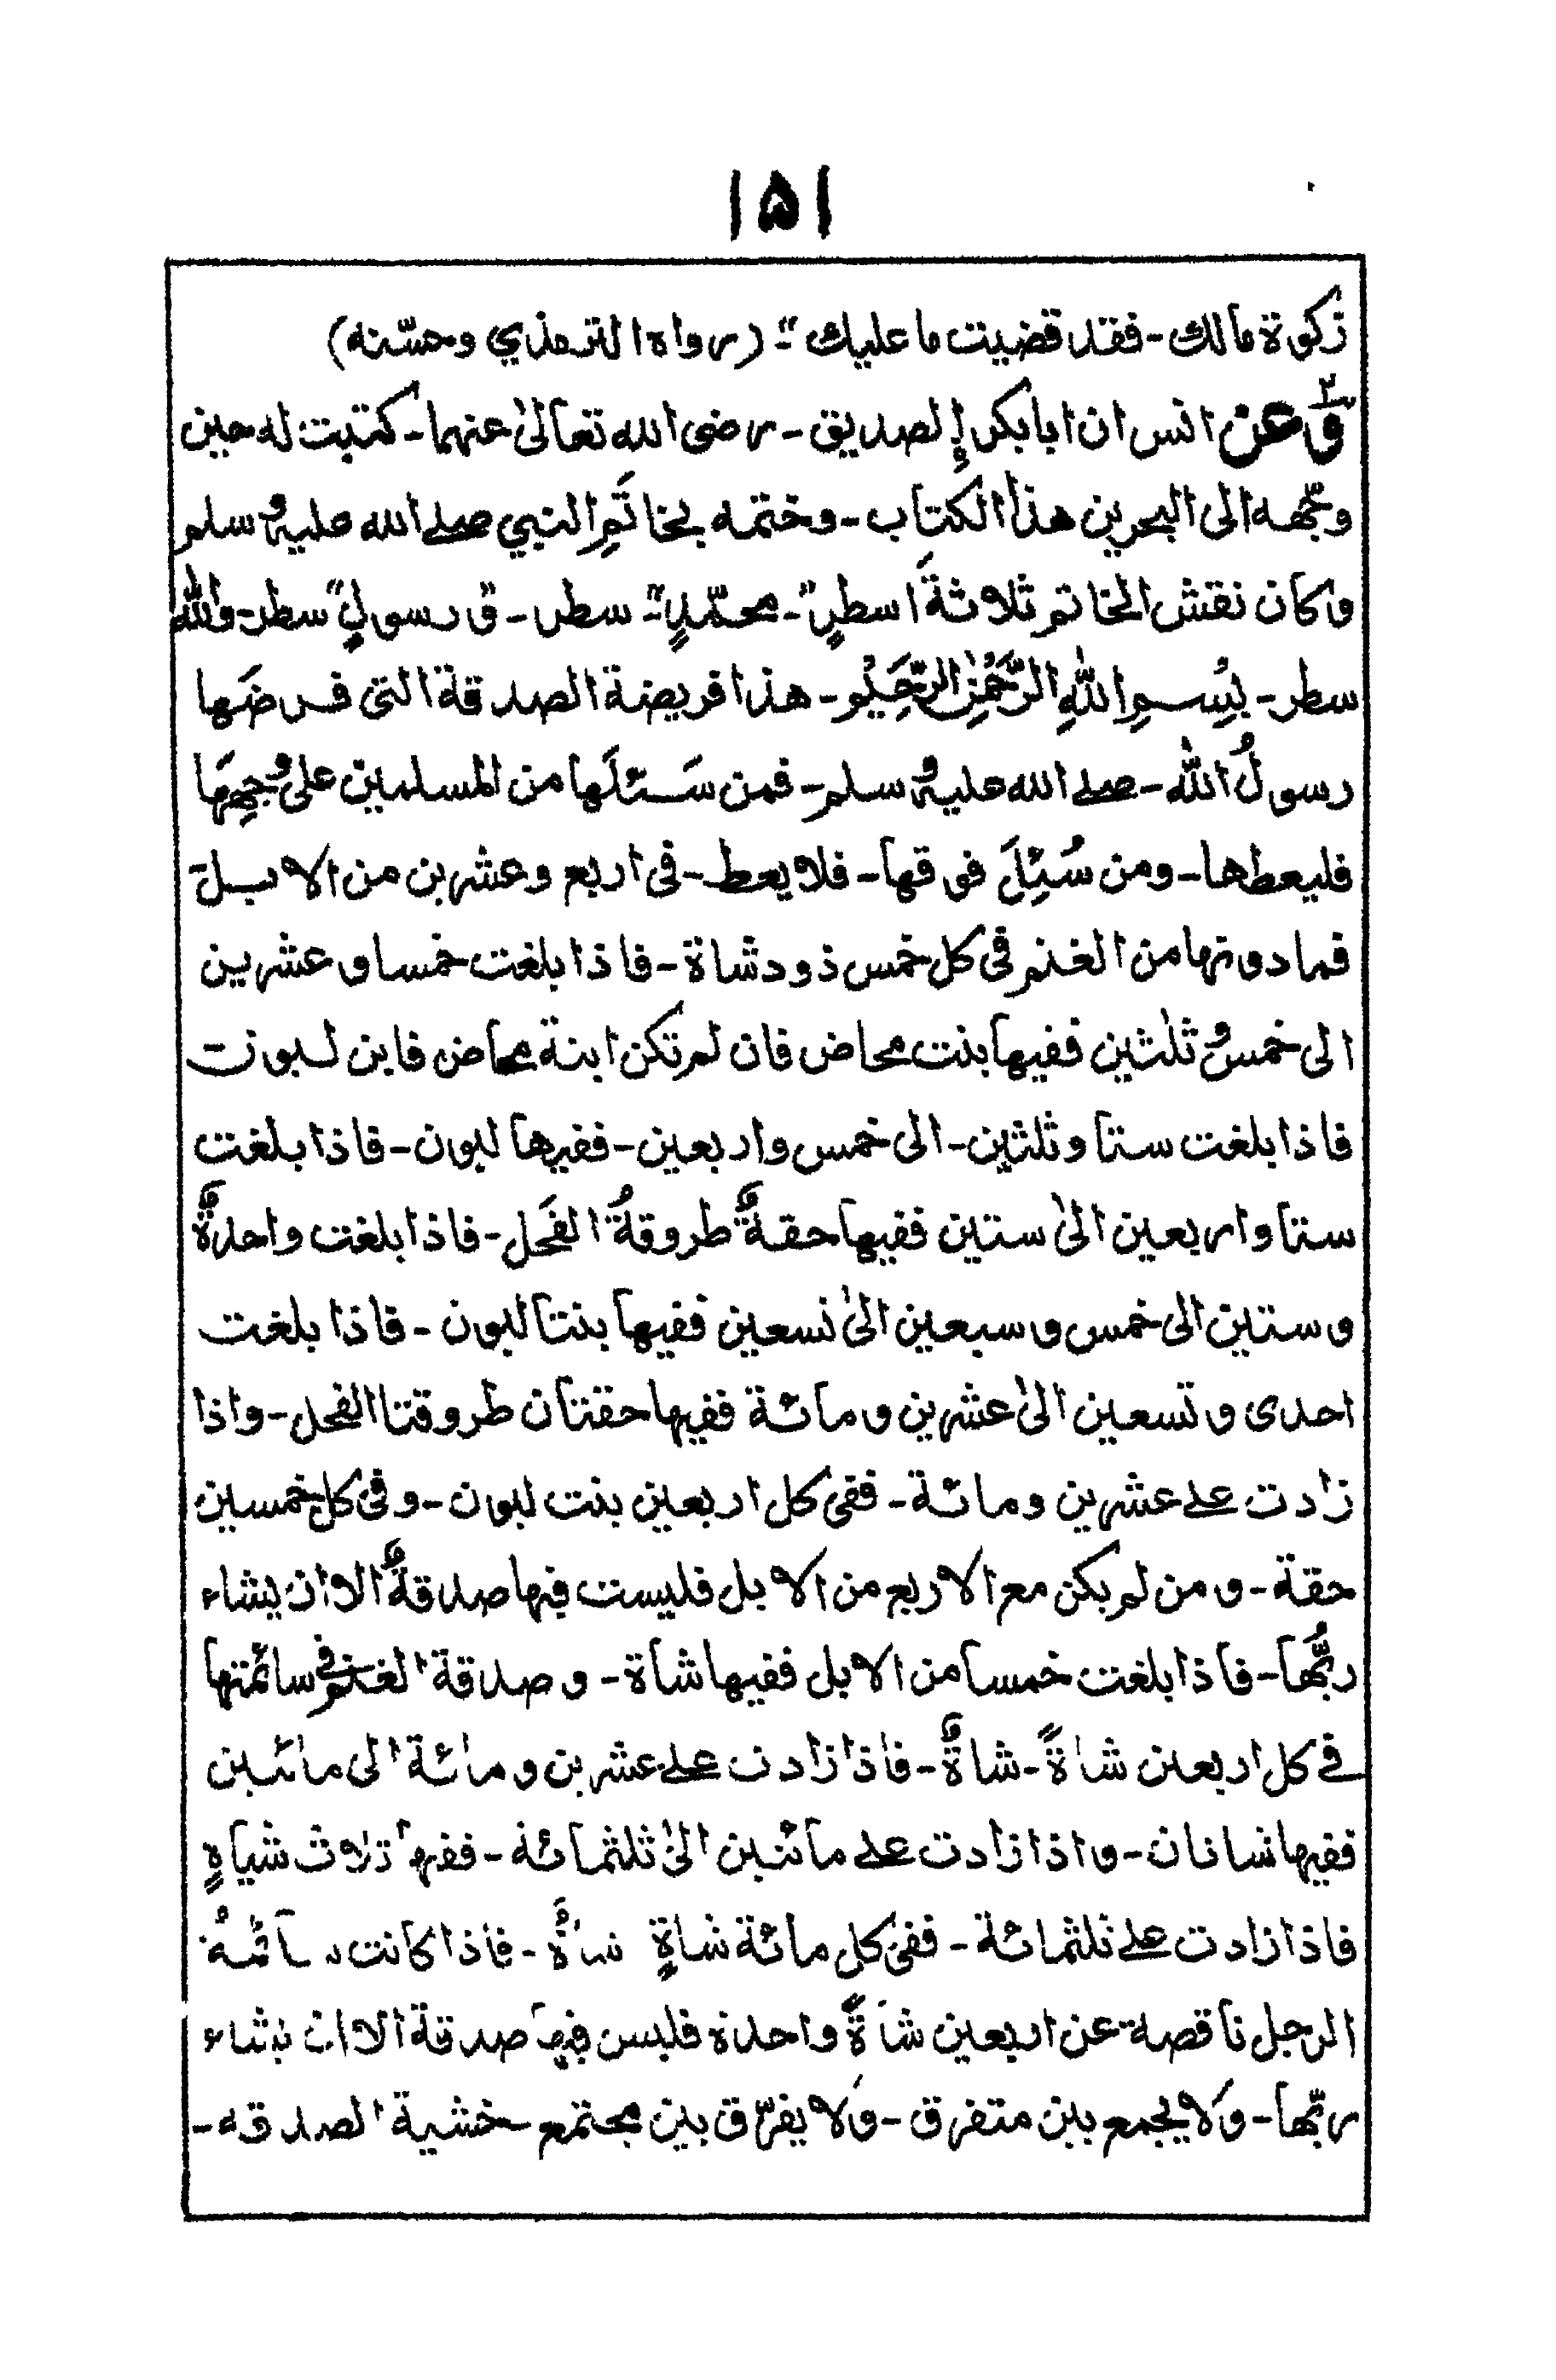 ۱۵۱
زكوة مالك - فقد قضيت ما عليك"- (رواه الترمذي وحسّنه)
وعن انس ان ابابكر إلصديق - رضى الله تعالىٰ عنهما - كتبت له حين
وجّهه الى البحرين هذا الكتاب - وختمه بخاتَمِ النبي صلے الله عليه وسلم
وكان نقش الخاتم ثلاثةَ اسطرٍ"- محمّدٍ"- سطر - و رسولٍ" سطر - والله
سطر - بِسمِ اللهِ الرَّحْمٰنِ الرَّحِيْمِ - هذا فريضة الصدقة التى فرضَها
رسولُ الله - صلے الله عليه وسلم - فمن سَئلَها من المسلمين على وجهِهَا
فليعطها - ومن سُئِلَ فوقها - فلا يعط - فى اربع وعشرين من الابل
فما دونها من الغنم فى كل خمس ذود شاة - فاذا بلغت خمسا وعشرين
الى خمس وثلٰثين ففيها بنت محاض فان لم تكن ابنة محاض فابن لبون
فاذا بلغت ستا وثلثين - الى خمس واربعين - ففيها لبون - فاذا بلغت
ستا واربعين الىٰ ستين ففيها حقةٌ طروقةُ الفَحل - فاذا بلغت واحدةٌ
وستين الى خمس وسبعين الىٰ نسعين ففيها بنتا لبون - فاذا بلغت
احدى وتسعين الىٰ عشرين ومائة ففيها حقتان طروقتا الفحل - واذا
زادت علے عشرين ومائة - ففى كل اربعين بنت لبون - وفى كل خمسين
حقة - ومن لم يكن مع الاربع من الابل فليست فيها صدقةٌ الا ان يشاء
ربُّها - فاذا بلغت خمسا من الابل ففيها شاة - وصدقة الغنم فى سائمتها
فے كل اربعين شاةً - شاةٌ - فاذا زادت علے عشرين ومائة الى مائتين
ففيها شاتان - واذا زادت علے مائتين الىٰ ثلثمائة - ففيها ثلاث شياهٍ
فاذا زادت علے ثلثمائة - ففى كل مائة شاةٍ شاةٌ - فاذا كانت سآئمةُ
الرجل ناقصة عن اربعين شاةً واحدة فليس فيها صدقة الا ان يشاء
ربّها - ولا يجمع بين متفرق - ولا يفرّق بين مجتمع خشية الصدقه -